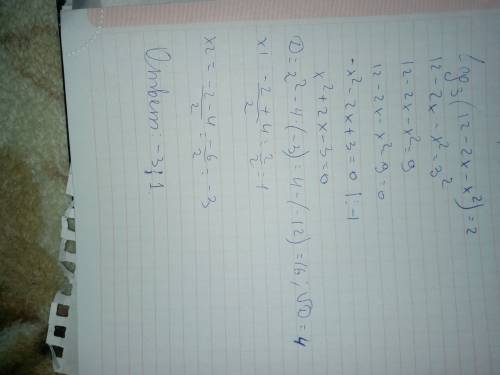 log₃(12-2x-x²)=2
12-2x-x²=3²
12-2x-x²=9
12-2x-x²-9=0
-x²-2x+3=0 |:-1
x²+2x-3=0
D=2²-4·(-3)=4-(-12)=16; √D=4
x1 = -2+4/2 = 2/2 = 1
x2 = -2-4/2 = -6/2 = -3
Ответ: -3; 1